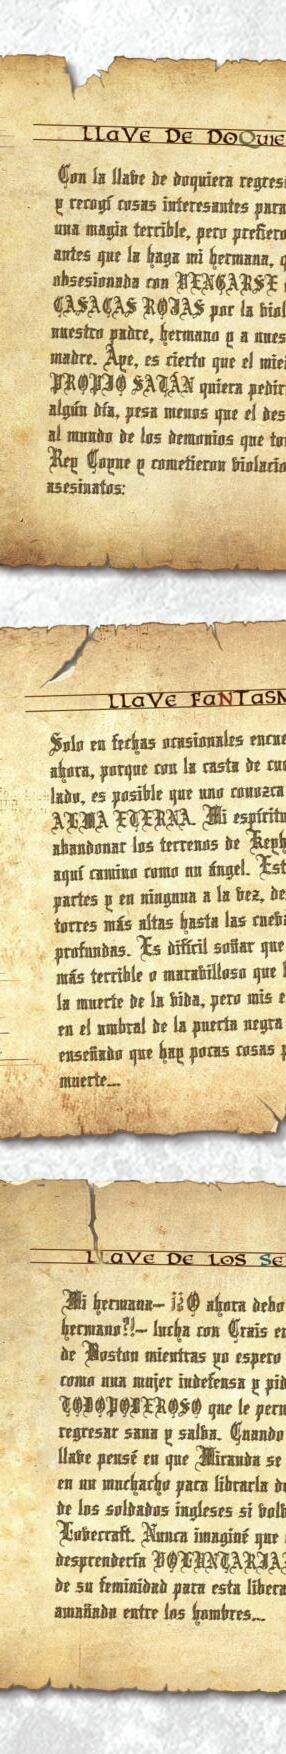 LLAVE DE DOQUIE
Con la llave de doquiera regres
y recogí cosas interesantes para
una magia terrible, pero prefiero
antes que la haga mi hermana, q
obsesionada con VENGARSE
CASACAS ROJAS por la viol
nuestro padre, hermano y a nues
madre. Aye, es cierto que el mie
PROPIO SATÁN quiera pedir
algún día, pesa menos que el des
al mundo de los demonios que to
Rey Coyne y cometieron violacio
asesinatos:
LLAVE FANTASM
Solo en fechas ocasionales encue
ahora, porque con la casta de cu
lado, es posible que uno conozca
ALMA ETERNA. Mi espíritu
abandonar los terrenos de Keyh
aquí camino como un ángel. Est
partes y en ninguna a la vez, de
torres más altas hasta las cueva
profundas. Es difícil soñar que
más terrible o maravilloso que l
la muerte de la vida, pero mis e
en el umbral de la puerta negra
enseñado que hay pocas cosas p
muerte...
LLAVE DE LOS SE
Mi hermana– ¡¿O ahora debo
hermano?!– lucha con Crais en
de Boston mientras yo espero
como una mujer indefensa y pid
TODOPODEROSO que le perm
regresar sana y salva. Cuando
llave pensé en que Miranda se
en un muchacho para librarla d
de los soldados ingleses si volv
Lovecraft. Nunca imaginé que
desprendería VOLUNTARIA
de su feminidad para esta libera
amañada entre los hombres...